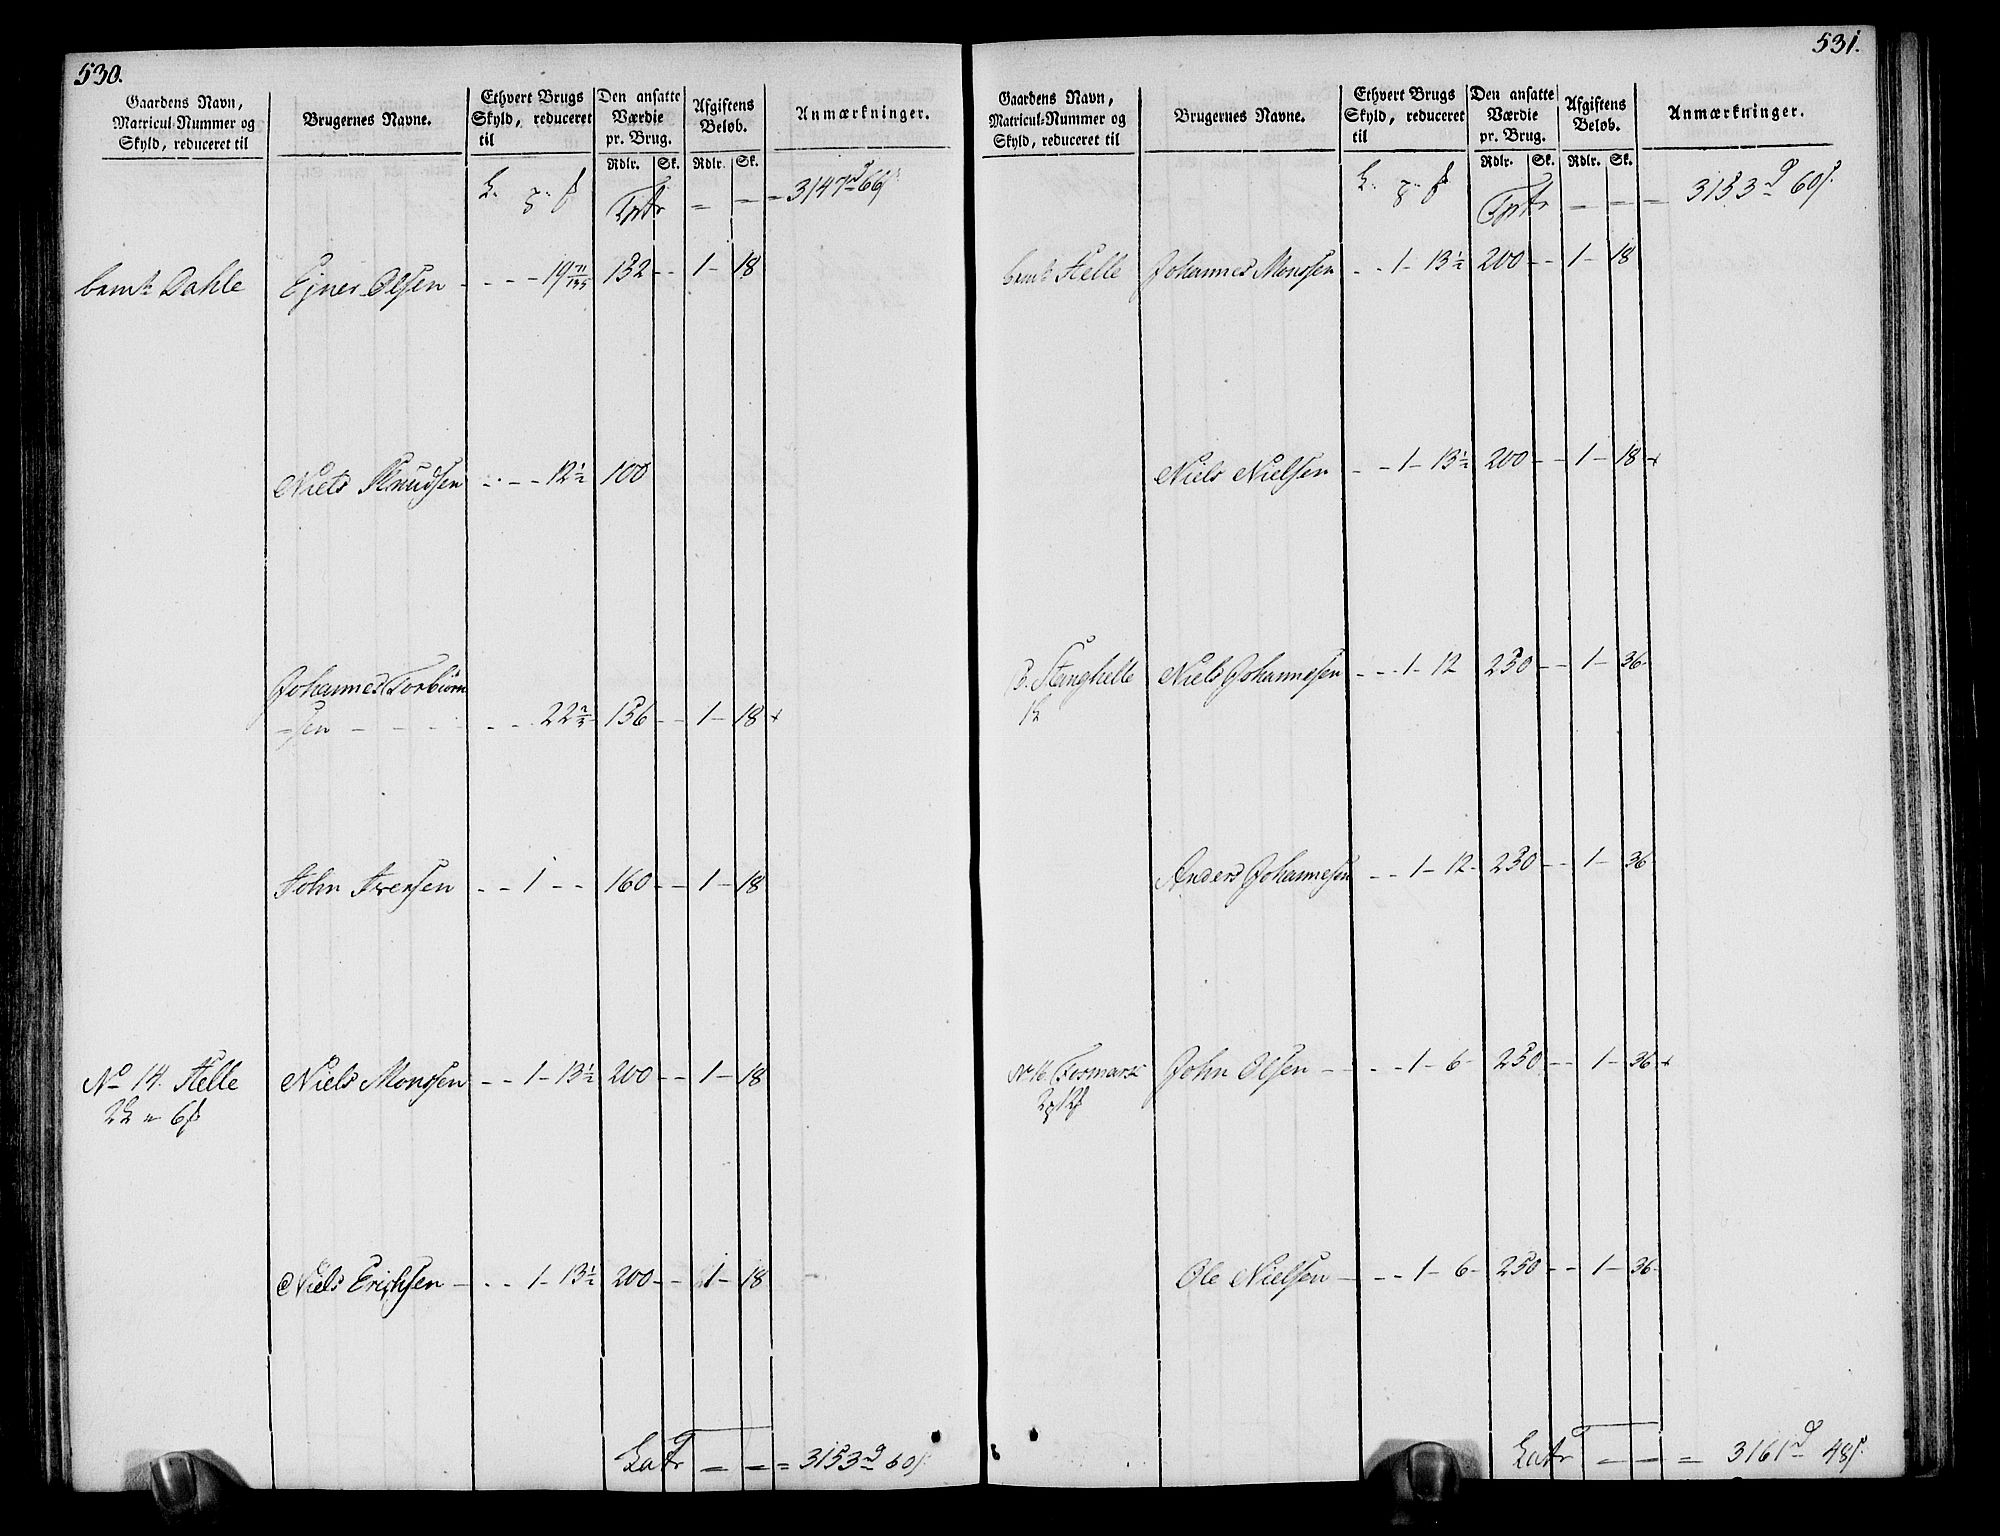 530.
Gaardens Navn, Matricul-Nummer og Skyld, reduceret til
Brugernes Navne.
Ethvert Brugs Skyld, reduceret til
Den ansatte Værdie pr. Brug.
Afgiftens Beløb.
Anmærkninger.
Rdlr. Sk. Rdlr. Sk.
Tptr = = = 3147 66
Dahle Ejner Olsen - - - 19 132 - - 1 - 18
Niels Knudsen - - - 12½ 100
Johannes Torbiørn
-sen - - - - - 22⅔ 156 - - 1 - 18 +
John Iversen - - 1 - - 160 - - 1 - 18
No 14. Helle Niels Monssen - - 1 - 13½ 200 - - 1 - 18
2 „ 6
Niels Erichsen - - - 1 - 13½ 200 - - 1 - 18
Latr = = = 3153 60
531.
Gaardens Navn, Matricul-Nummer og Skyld, reduceret til
Brugernes Navne.
Ethvert Brugs Skyld, reduceret til
Den ansatte Værdie pr. Brug.
Afgiftens Beløb.
Anmærkninger.
Rdlr. Sk. Rdlr. Sk.
Tptr = = = 3153 60
Helle Johannes Monssen - - 1 - 13½ 200 - - 1 - 18
Niels Nielsen - - 1 - 13½ 200 - - 1 - 18 +
Stanghelle Niels Johannesen - - 1 - 12 250 - - 1 - 36
Anders Johannesen - - 1 - 12 - 250 - - 1 - 36
John Olsen - - - 1 - 6 - 250 - - 1 - 36 +
Ole Nielsen - - - 1 - 6 - 250 - - 1 - 36
Latr - - = 3161 48